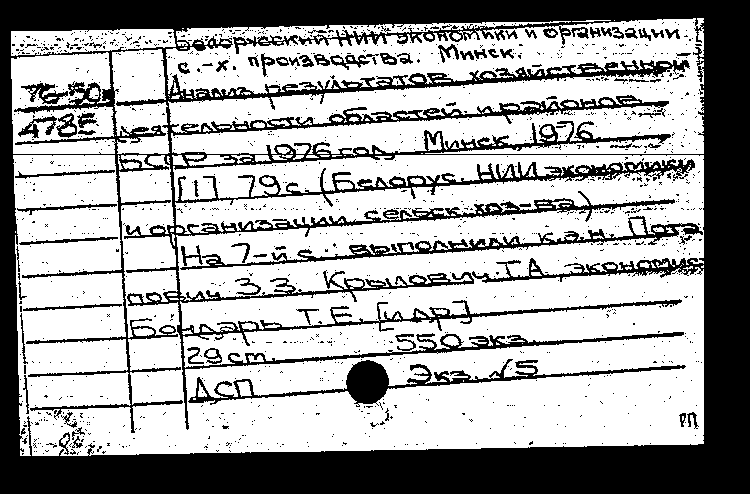 Белорусский НИИ экономики и организации
с.-х. производства. Минск.
76-50
4785
Анализ результатов хозяйственной
деятельности областей и районов
БССР за 1976 год. Минск, 1976
[1], 79 с. (Белорус. НИИ экономики
и организации сельск. хоз-ва)
На 7-й с.: выполнили к.э.н. Пота
пович З.З., Крылович Т.А., экономис
Бондарь Т.Е. [и др.]
29 ст. 550 экз.
ДСП Экз. √5
РП